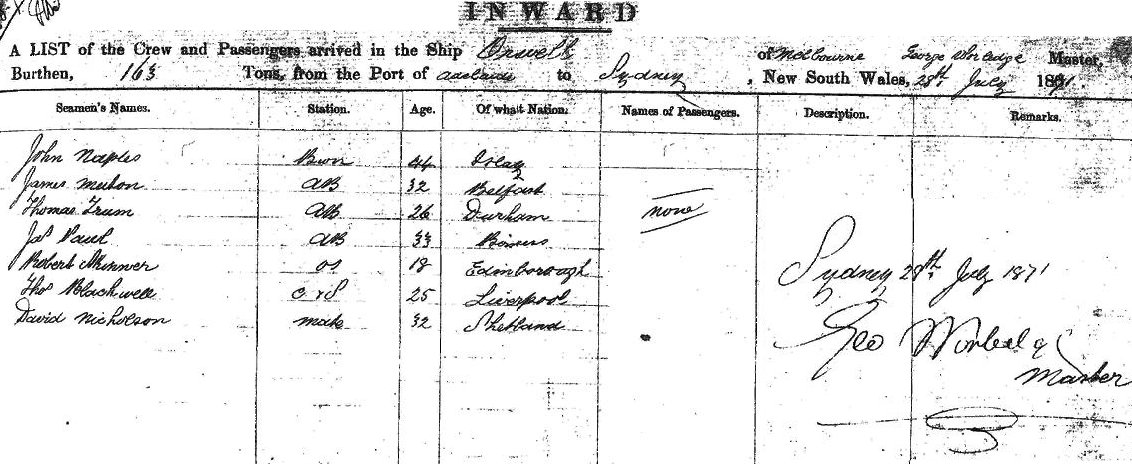 INWARD
A LIST of the Crew and Passengers arrived in the Ship Orwell of Melbourne George Worledge Master,
Burthen, 163 Tons, from the Port of Adelaide to Sydney, New South Wales, 28th July 1871
Seamen's Names. Station. Age. Of what Nation. Names of Passengers. Description. Remarks.
John Naples 44
James 32 Belfast
Thomas AB 26 Durham none
Jas Paul AB 33
Robert Skinner OS 18 Edinborough Sydney 28th July 1871
Thos Blackwell C & S 25 Liverpool
David Nicholson mate 32 Shetland Geo
Master